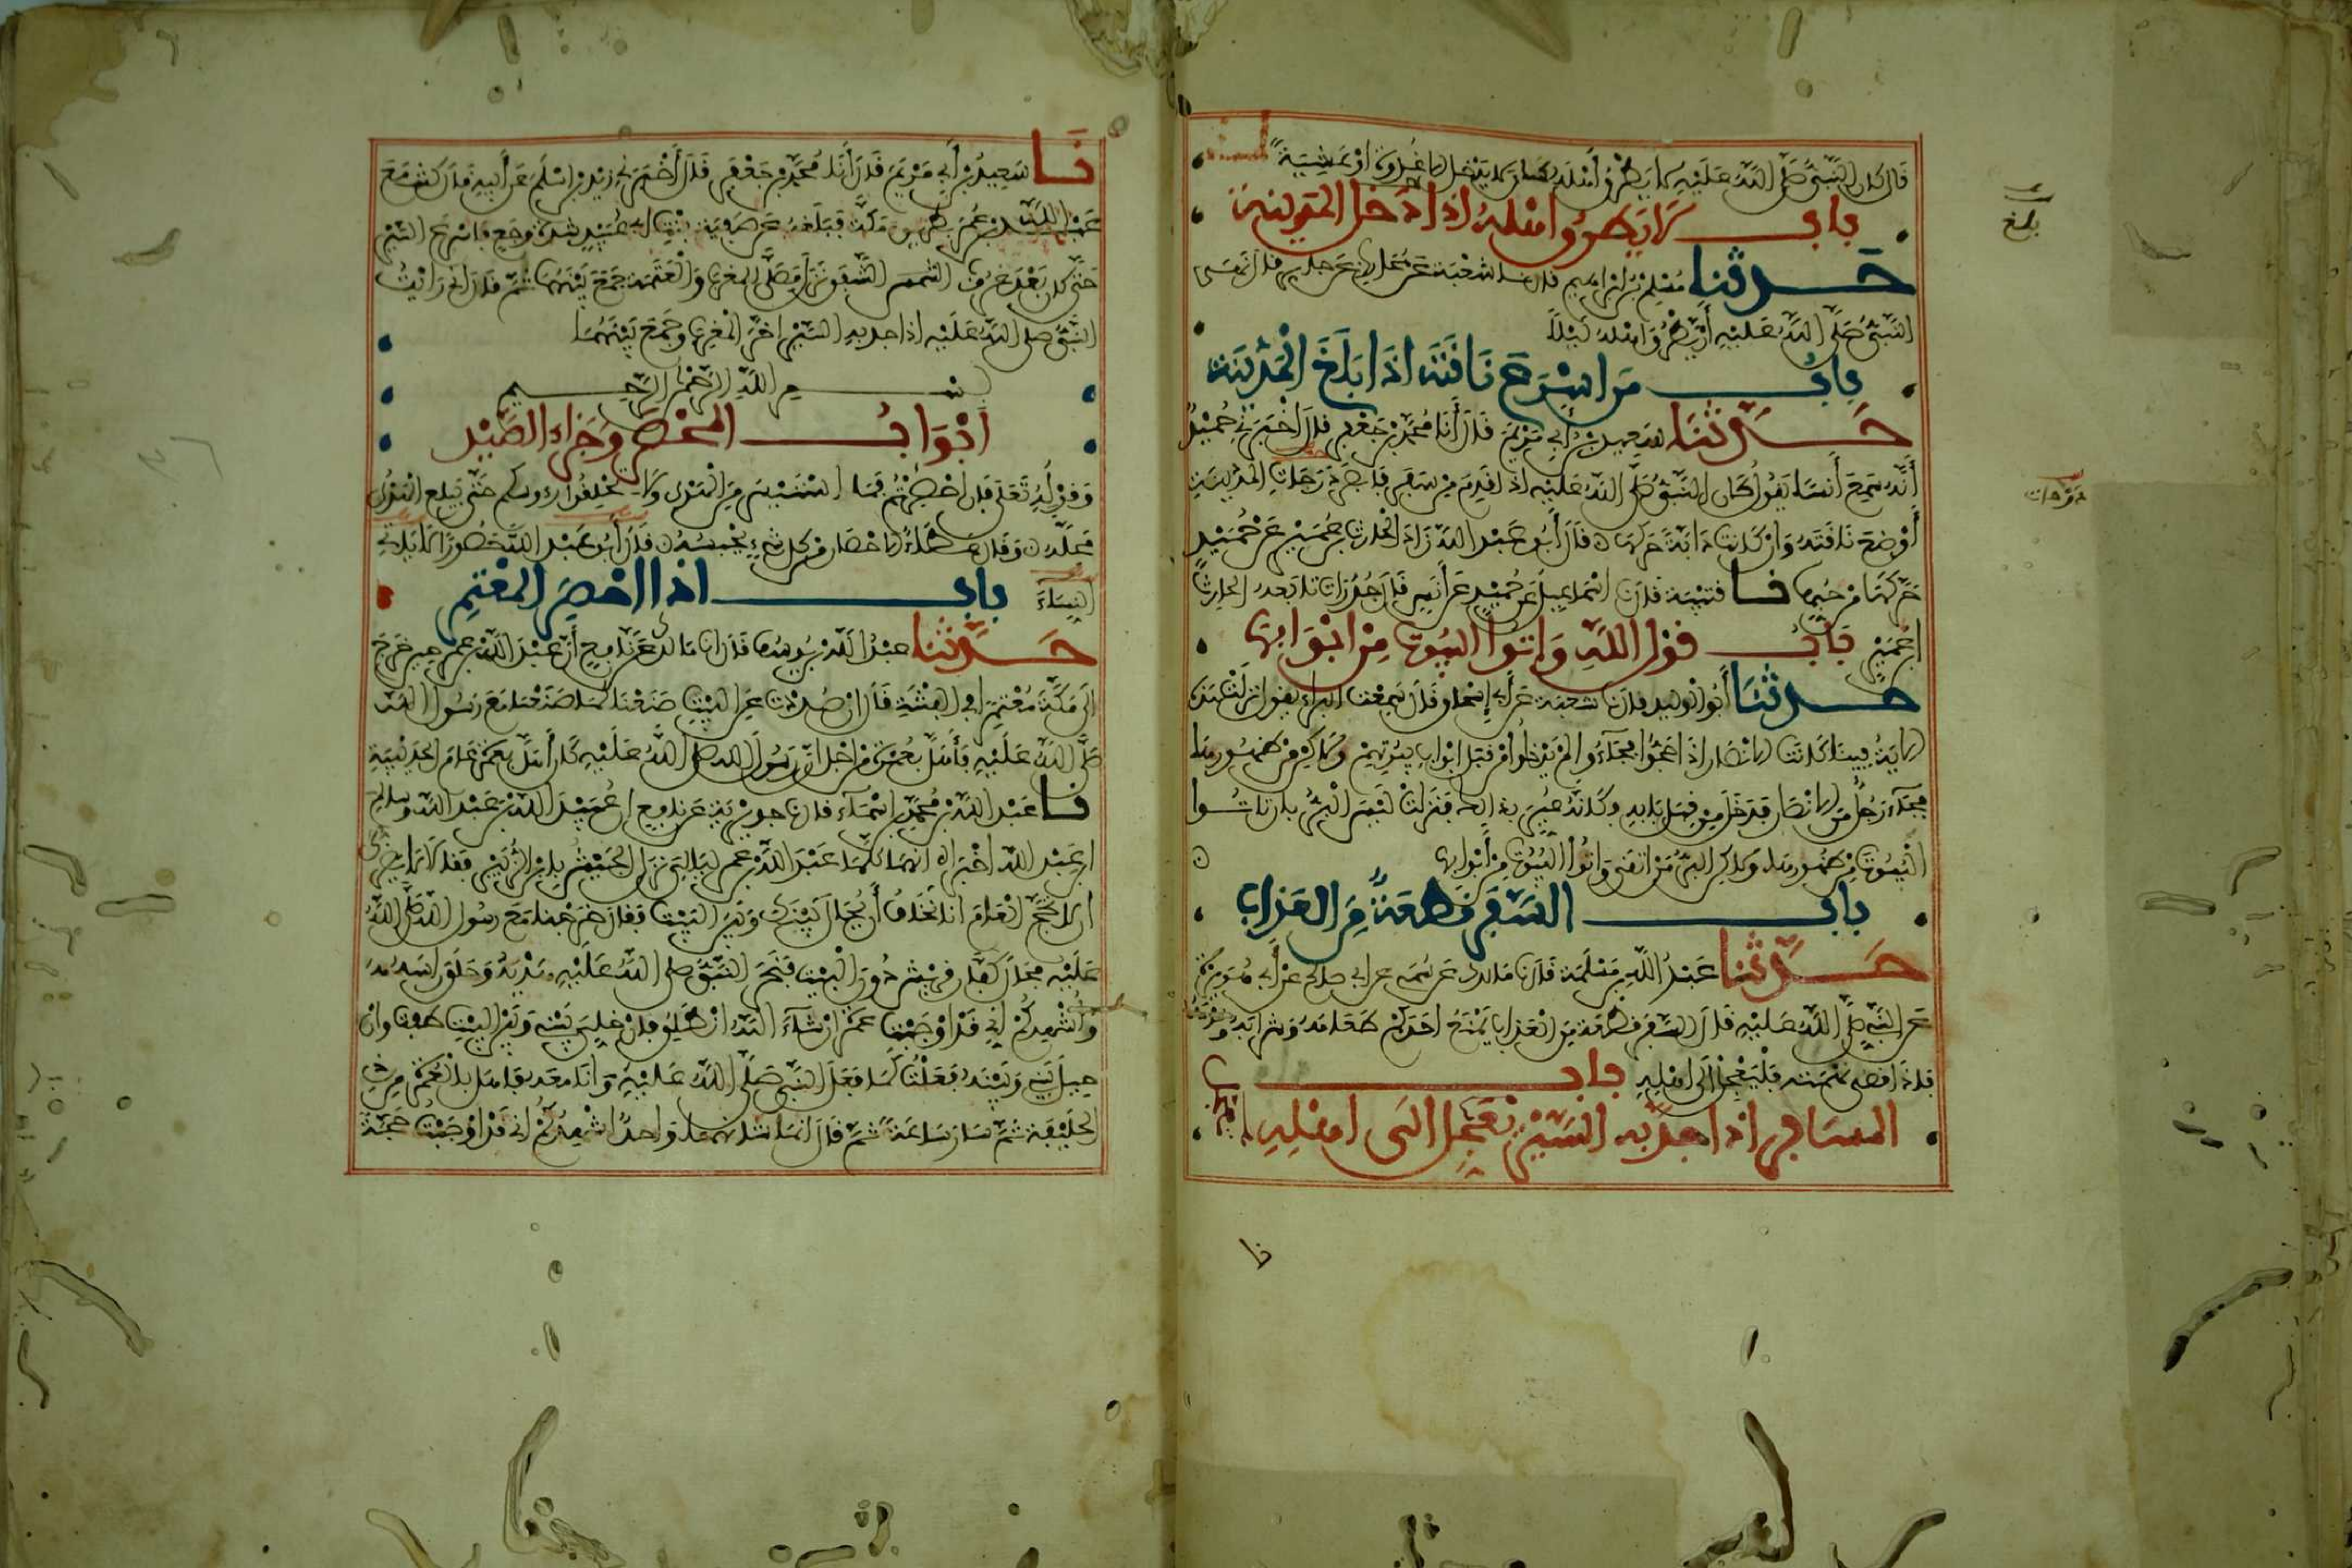 قال كان النبي صلى الله عليه لا يطرق أهله كان لا يدخل الا غدوة او عشية
باب لا يطرق اهله اذا دخل المدينة
حدثنا مسلم بن ابراهيم قال نا شعبة عن محارب عن جابر قال نهى
النبي صلى الله عليه أن يطرق اهله ليلا
باب من اسرع ناقته اذا بلغ المدينة
حدثنا سعيد بن أبي مريم قال أنا محمد بن جعفر قال أخبرني حميد
أنه سمع أنسا يقول كان النبي صلى الله عليه اذا قدم من سفر فابصر درجات المدينة
أوضع ناقته وان كانت دابة حركها قال أبو عبد الله زاد الحارث بن عمير عن حميد
حركها من حبها نا قتيبة قال نا اسماعيل عن حميد عن أنس قال جدرات تابعه الحارث
بن عمير باب قول الله واتوا البيوت من ابوابها
حدثنا أبو الوليد قال نا شعبة عن أبي إسحاق قال سمعت البراء يقول نزلت هذه
الاية فينا كانت الانصار اذا حجوا فجاءوا لم يدخلوا من قبل ابواب بيوتهم ولاكن من ظهورها
فجاء رجل من الانصار فدخل من قبل بابه وكانه عير بذالك فنزلت ليس البر بان تاتوا
البيوت من ظهورها ولاكن البر من اتقى واتوا البيوت من أبوابها
باب السفر قطعة من العذاب
حدثنا عبد الله بن مسلمة قال نا مالك عن سمي عن ابي صالح عن أبي هريرة
عن النبي صلى الله عليه قال السفر قطعة من العذاب يمنع احدكم طعامه وشرابه ونومه
فاذا قضى نهمته فليعجل الى اهله باب
المسافر اذا جد به السير يعجل الى اهله
بلغ
دوحات
نا سعيد بن أبي مريم قال أنا محمد بن جعفر قال أخبرني زيد بن اسلم عن أبيه قال كنت مع
عبد الله بن عمر بطريق مكة فبلغه عن صفية بنت ابي عبيد شدة وجع فاسرع السير
حتى كان بعد غروب الشفق نزل فصلى المغرب والعتمة جمع بينهما ثم قال اني رايت
النبي صلى الله عليه اذا جد به السير اخر المغرب وجمع بينهما
بسم الله الرحمن الرحيم
أبواب المحصر وجزاء الصيد
وقوله تعلى فإن احصرتم فما استيسر من الهدي ولا تحلقوا رءوسكم حتى يبلغ الهدي
محله وقال عطاء الاحصار من كل شيء يحبسه قال أبو عبد الله حصورا لا ياتي
النساء باب اذا احصر المعتمر
حدثنا عبد الله بن يوسف قال انا مالك عن نافع أن عبد الله بن عمر حين خرج
الى مكة معتمرا في الفتنة قال ان صددت عن البيت صنعنا كما صنعنا مع رسول الله
صلى الله عليه فأهل بعمرة من اجل ان رسول الله صلى الله عليه كان أهل بعمرة عام الحديبية
نا عبد الله بن محمد بن اسماء قال نا جويرية عن نافع ان عبيد الله بن عبد الله وسالم
ابن عبد الله اخبراه انهما كلما عبد الله بن عمر ليالي نزل الجيش بابن الزبير فقالا لا يضرك
ان لا تحج العام انا نخاف أن يحال بينك وبين البيت فقال خرجنا مع رسول الله صلى الله
عليه فحال كفار قريش دون البيت فنحر النبي صلى الله عليه هديه وحلق راسه
وأشهدكم أني قد أوجبت عمرة ان شاء الله انطلق فان خلي بيني وبين البيت طفت وان
حيل بيني وبينه فعلت كما فعل النبي صلى الله عليه وانا معه فاهل بالعمرة من ذي
الحليفة ثم سار ساعة ثم قال انما شانهما واحد اشهدكم اني قد اوجبت حجة